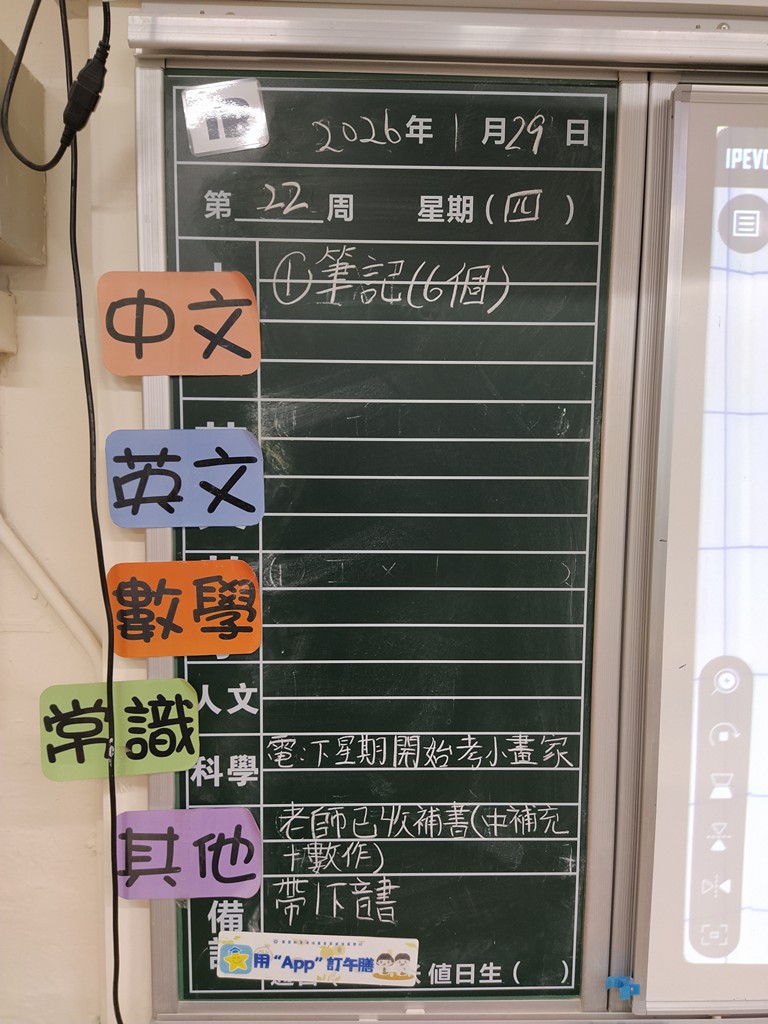 1B
2026年1月29日
第22周 星期(四)
中文
①筆記(6個)
英文
數學
人文
常識
電:下星期開始考小畫家
科學
其他
老師已收補書(中補充
+數作)
帶1下音書
備
用“App”訂午膳
值日生( )
IPEVO